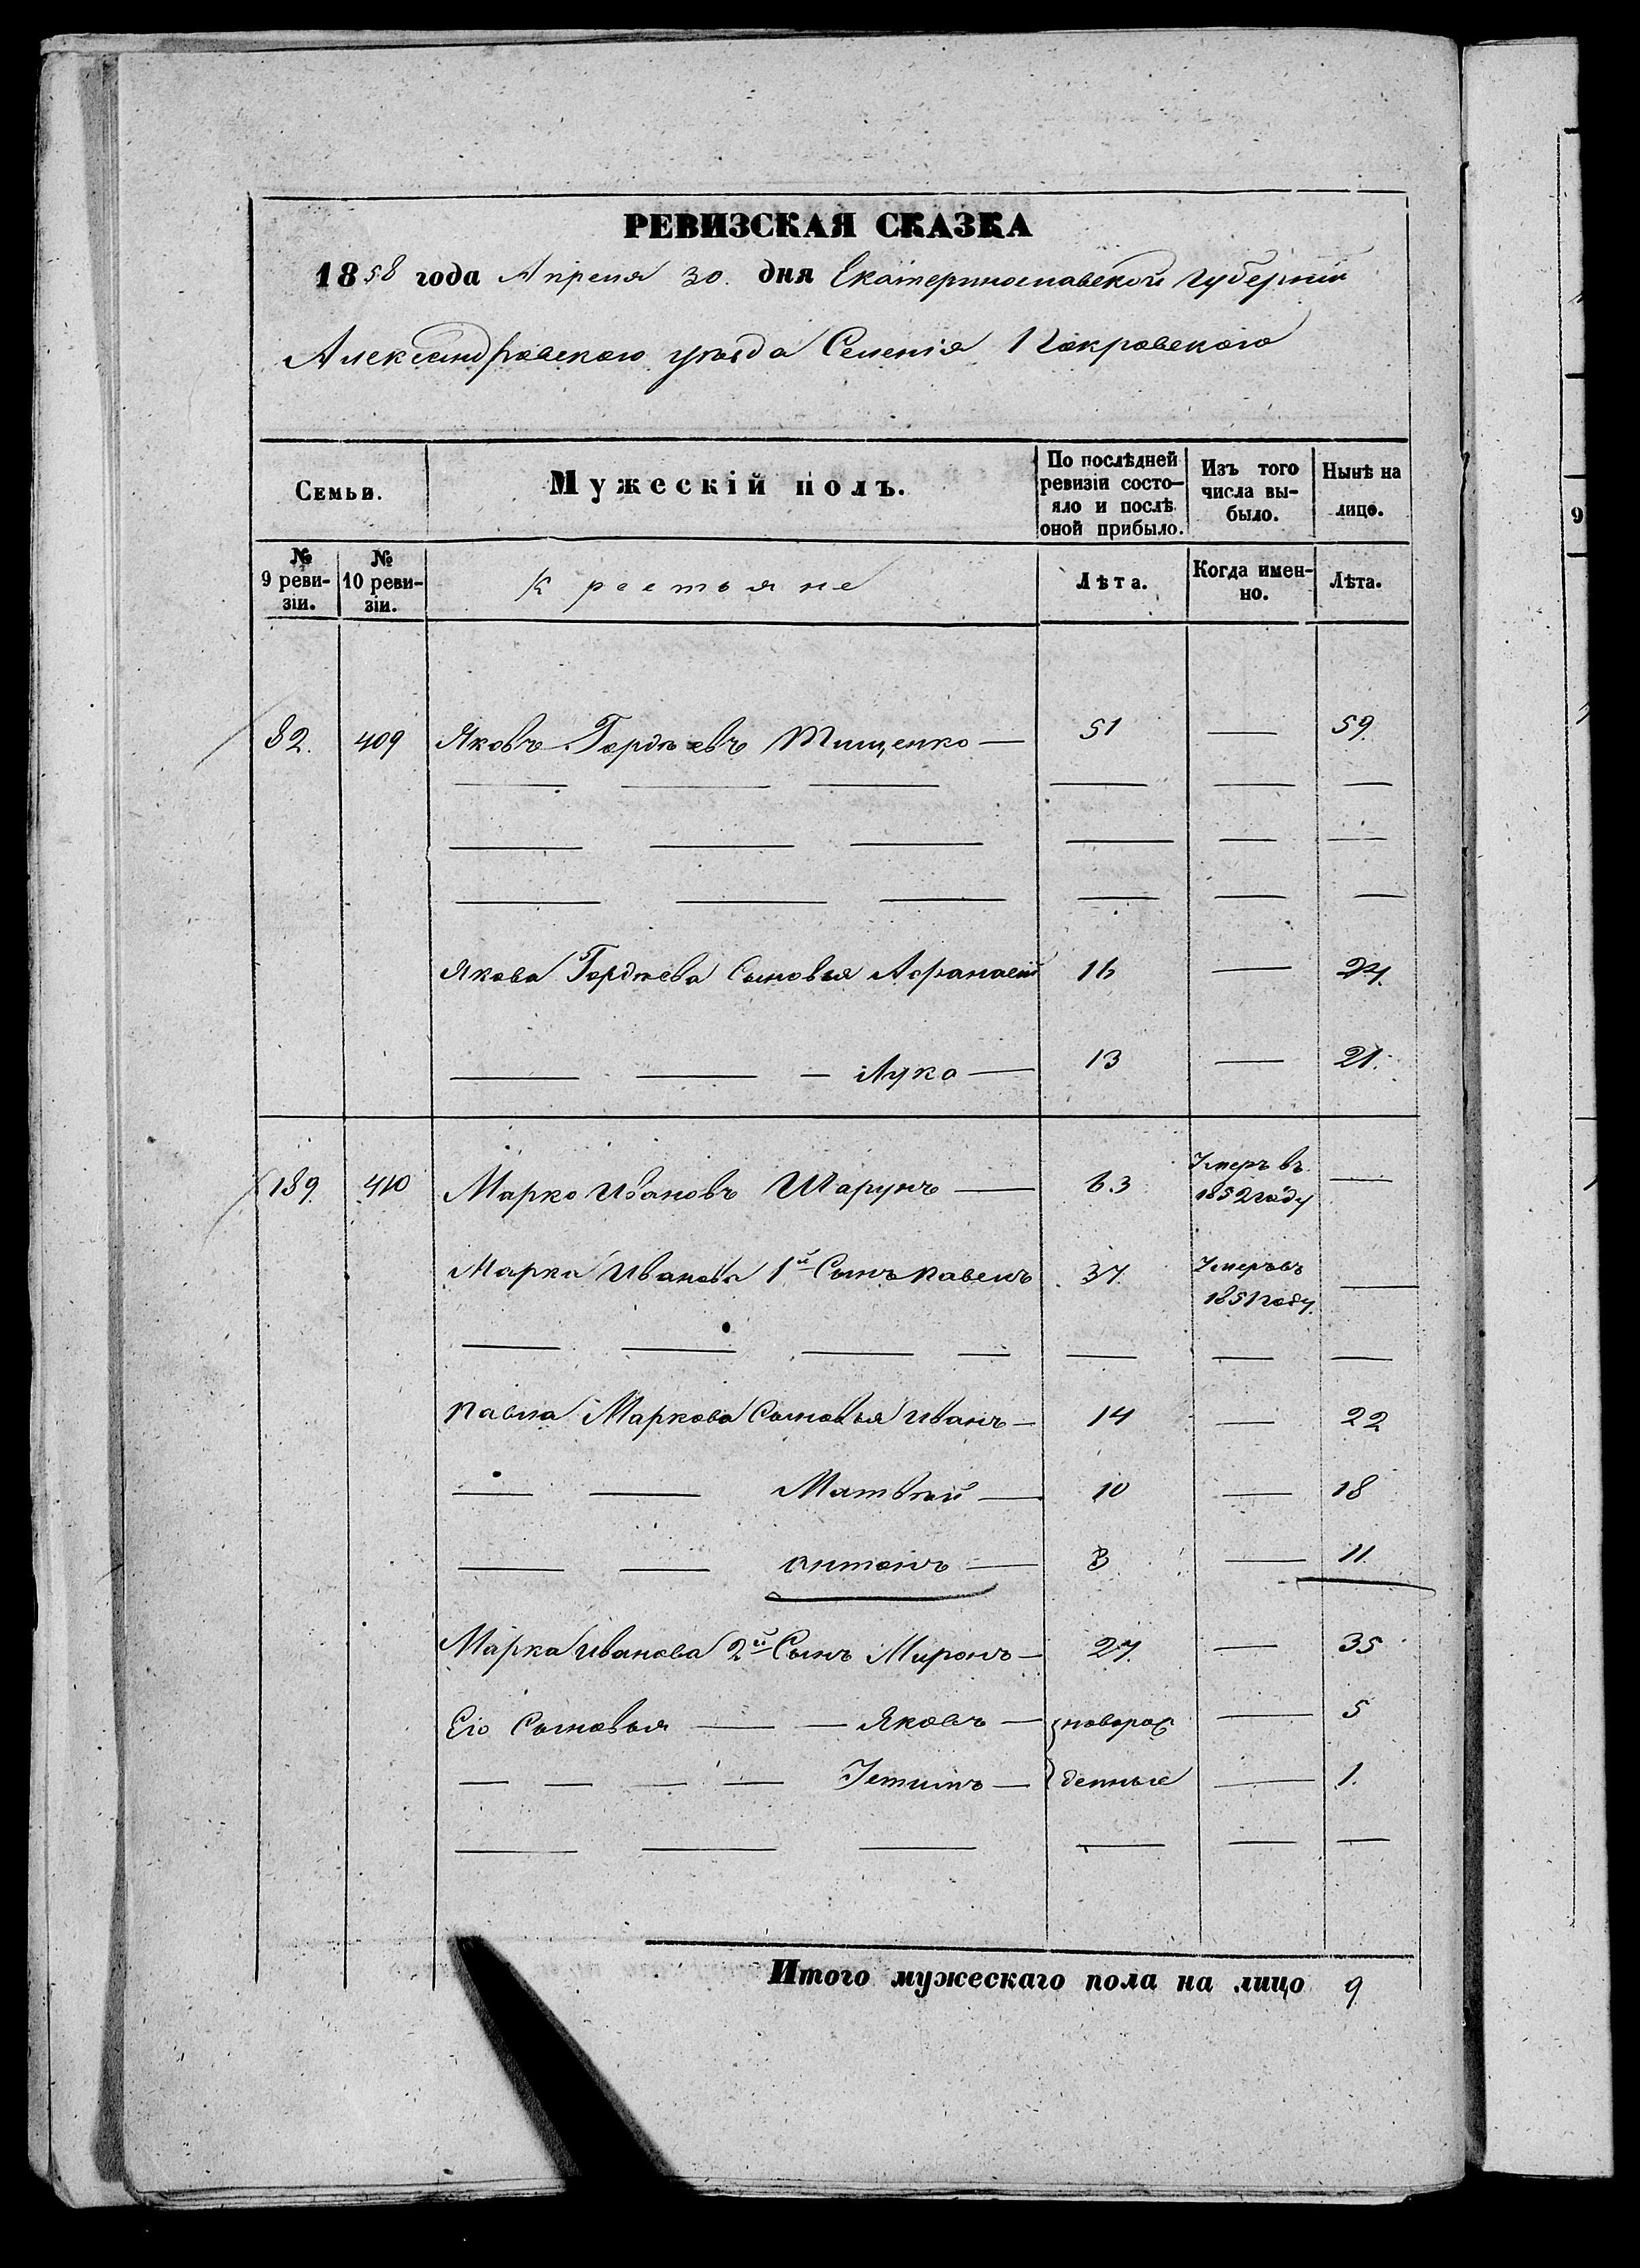 РЕВИЗСКАЯ СКАЗКА
1858 года Апреля 30. дня Екатеринославской Губернiи
Александровскаго уѣзда Селенiя Покровскаго
Семьи. Мужескiй полъ. По послѣдней ревизiи состо- яло и послѣ оной прибыло. Изъ того числа вы- было. Нынѣ на лицо.
№ 9 реви- зiи. № 10 реви- зiи. Крестьяне Лѣта. Когда имен- но. Лѣта.
82. 409 Яковъ Гордѣевъ Тищенко — 51 — 59.
Якова Гордѣева Сыновья Афанасiй 16 — 24.
— — — Лука — 13 — 21.
189 410 Марко Ивановъ Шарунъ — 63 Умеръ въ 1852 году —
Марка Иванова 1й Сынъ Павелъ 37. Умеръ въ 1851 году. —
Павла Маркова Сыновья Иванъ — 14 — 22
— — Матвѣй — 10 — 18
— — Антонъ — 3 — 11
Марка Иванова 2й Сынъ Миронъ — 27. — 35
Его Сыновья — — Яковъ — новорож — 5
— — — — Устимъ — денные — 1.
Итого мужескаго пола на лицо 9
9